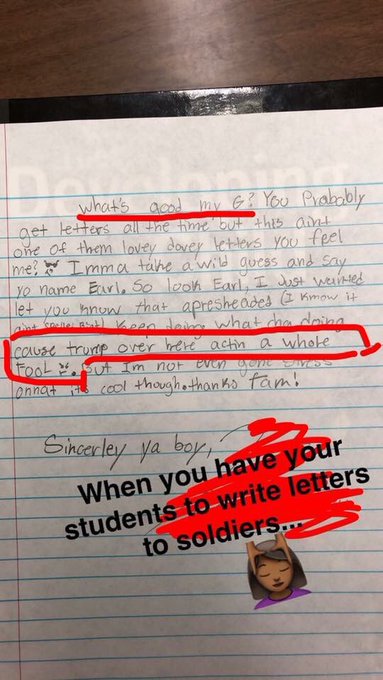 What's good my G? You Probably
get letters all the time but this aint
one of them lovey dovey letters you feel
me? Imma take a wild guess and say
yo name Earl. So look Earl, I Just wanted
let you know that apresheaded (I know it
aint spelled Right) Keep doing what cha doing
cause trump over here actin a whole
FOOL. But Im not even gone stress
onnat its cool though. thanks fam!
Sincerley ya boy,
When you have your
students to write letters
to soldiers...